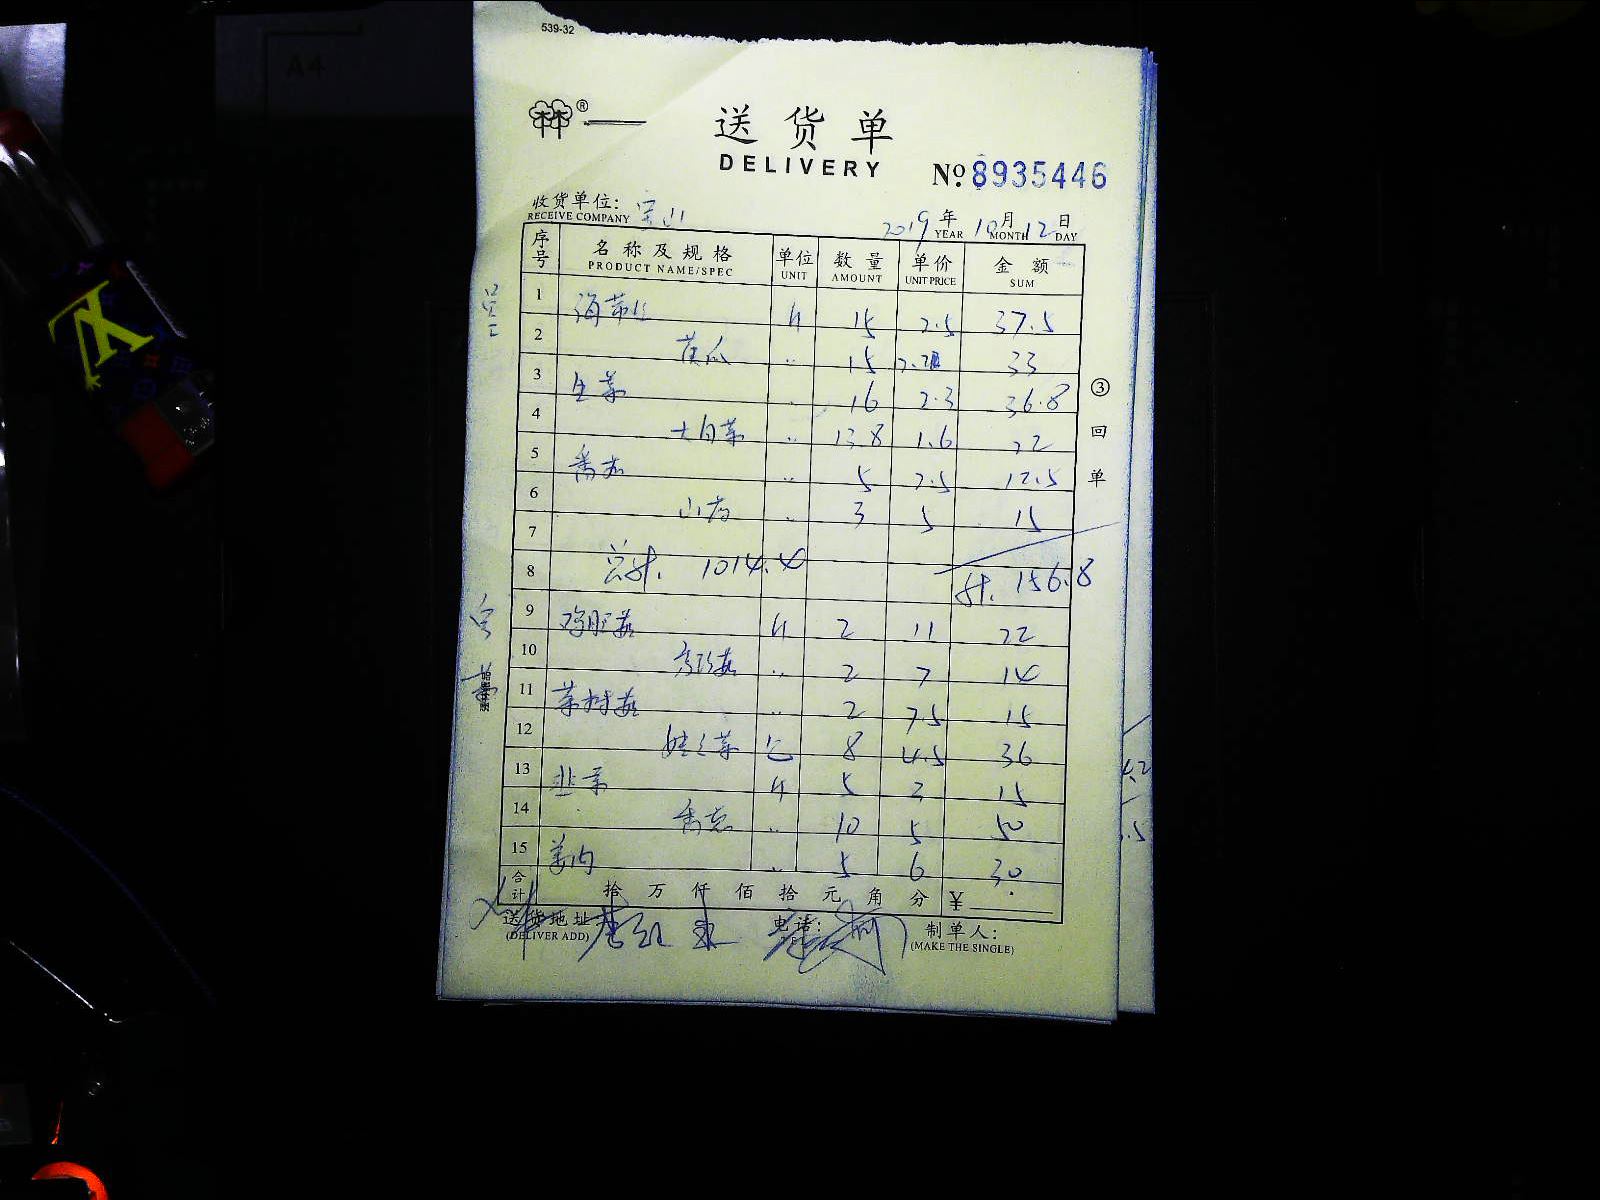 A4
539-32
林®
送货单
DELIVERY
No.8935446
收货单位: 宝山
RECEIVE COMPANY
2019年10月12日
YEAR MONTH DAY
序号 名称及规格 单位 数量 单价 金额
PRODUCT NAME/SPEC UNIT AMOUNT UNIT PRICE SUM
1 海带丝 斤 15 2.5 37.5
2 黄瓜 〃 15 2.2 33
3 生菜 〃 16 2.3 36.8
4 大白菜 〃 13.8 1.6 22
5 番茄 〃 5 2.5 12.5
6 山药 〃 3 5 15
7
8 总计. 1014.4 计. 156.8
9 鸡腿菇 斤 2 11 22
10 〃 2 7 14
11 茶树菇 〃 2 7.5 15
12 娃娃菜 包 8 4.5 36
13 韭菜 斤 5 3 15
14 〃 10 5 50
15 〃 5 6 30
合计 拾 万 仟 佰 拾 元 角 分 ¥
送货地址
(DELIVER ADD)
电话:
制单人:
(MAKE THE SINGLE)
③回单